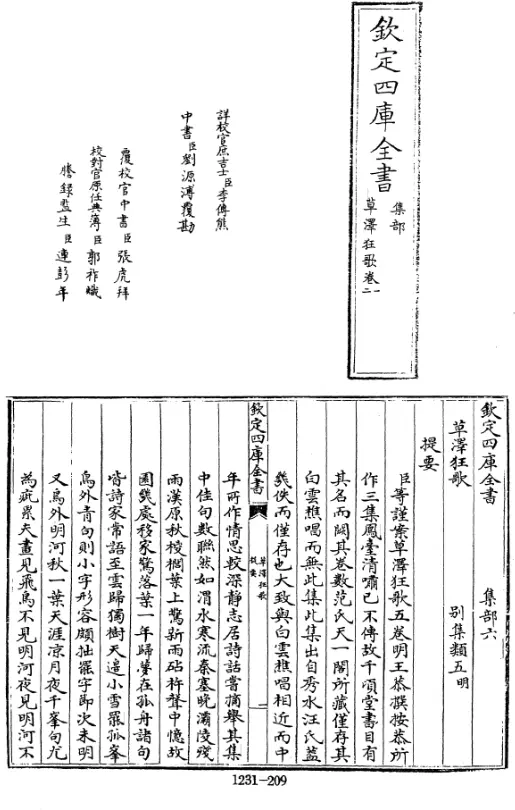 欽定四庫全書
集部
草澤狂歌卷一二
詳校官庶吉士臣李傳熊
中書臣劉源溥覆勘
覆校官中書臣張虎拜
校對官原任典簿臣郭祚熾
謄錄監生臣連彭年
欽定四庫全書 集部六
草澤狂歌 別集類五明
提要
臣等謹案草澤狂歌五卷明王恭撰按恭所
作三集鳳臺清嘯已不傳故千頃堂書目有
其名而闕其卷數范氏天一閣所藏僅存其
白雲樵唱而無此集此集出自秀水汪氏蓋
幾佚而僅存也大致與白雲樵唱相近而中
欽定四庫全書 草澤狂歌 提要 一
年所作情思較深靜志居詩話嘗摘舉其集
中佳句數聯然如渭水寒流秦塞晚灞陵殘
雨漢原秋梭櫚葉上驚新雨砧杵聲中憶故
園幾處移家驚落葉一年歸夢在孤舟諸句
皆詩家常語至雲歸獨樹天邊小雪罷孤峯
鳥外青句則小字形容頗拙罷字即次未明
又鳥外明河秋一葉天涯涼月夜千峯句尤
為疵累夫晝見飛鳥不見明河夜見明河不
1231-209